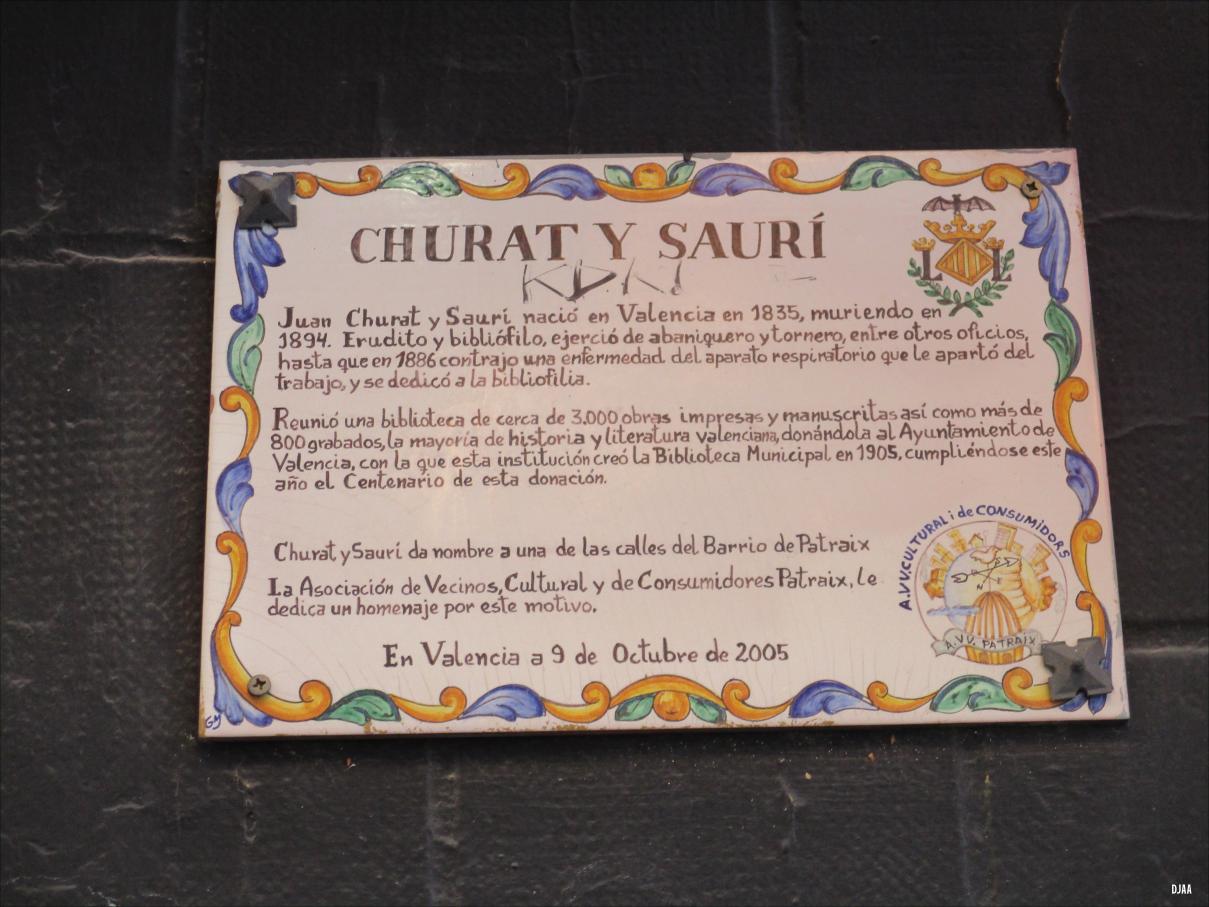 CHURAT Y SAURÍ
L L
Juan Churat y Saurí nació en Valencia en 1835, muriendo en
1894. Erudito y bibliófilo, ejerció de abaniquero y tornero, entre otros oficios,
hasta que en 1886 contrajo una enfermedad del aparato respiratorio que le apartó del
trabajo, y se dedicó a la bibliofilia.
Reunió una biblioteca de cerca de 3.000 obras impresas y manuscritas así como más de
800 grabados, la mayoría de historia y literatura valenciana, donándola al Ayuntamiento de
Valencia, con la que esta institución creó la Biblioteca Municipal en 1905, cumpliéndose este
año el Centenario de esta donación.
Churat y Saurí da nombre a una de las calles del Barrio de Patraix
La Asociación de Vecinos, Cultural y de Consumidores Patraix, le
dedica un homenaje por este motivo.
En Valencia a 9 de Octubre de 2005
A.VV.CULTURAL i de CONSUMIDORS
A.VV. PATRAIX
GM
DJAA